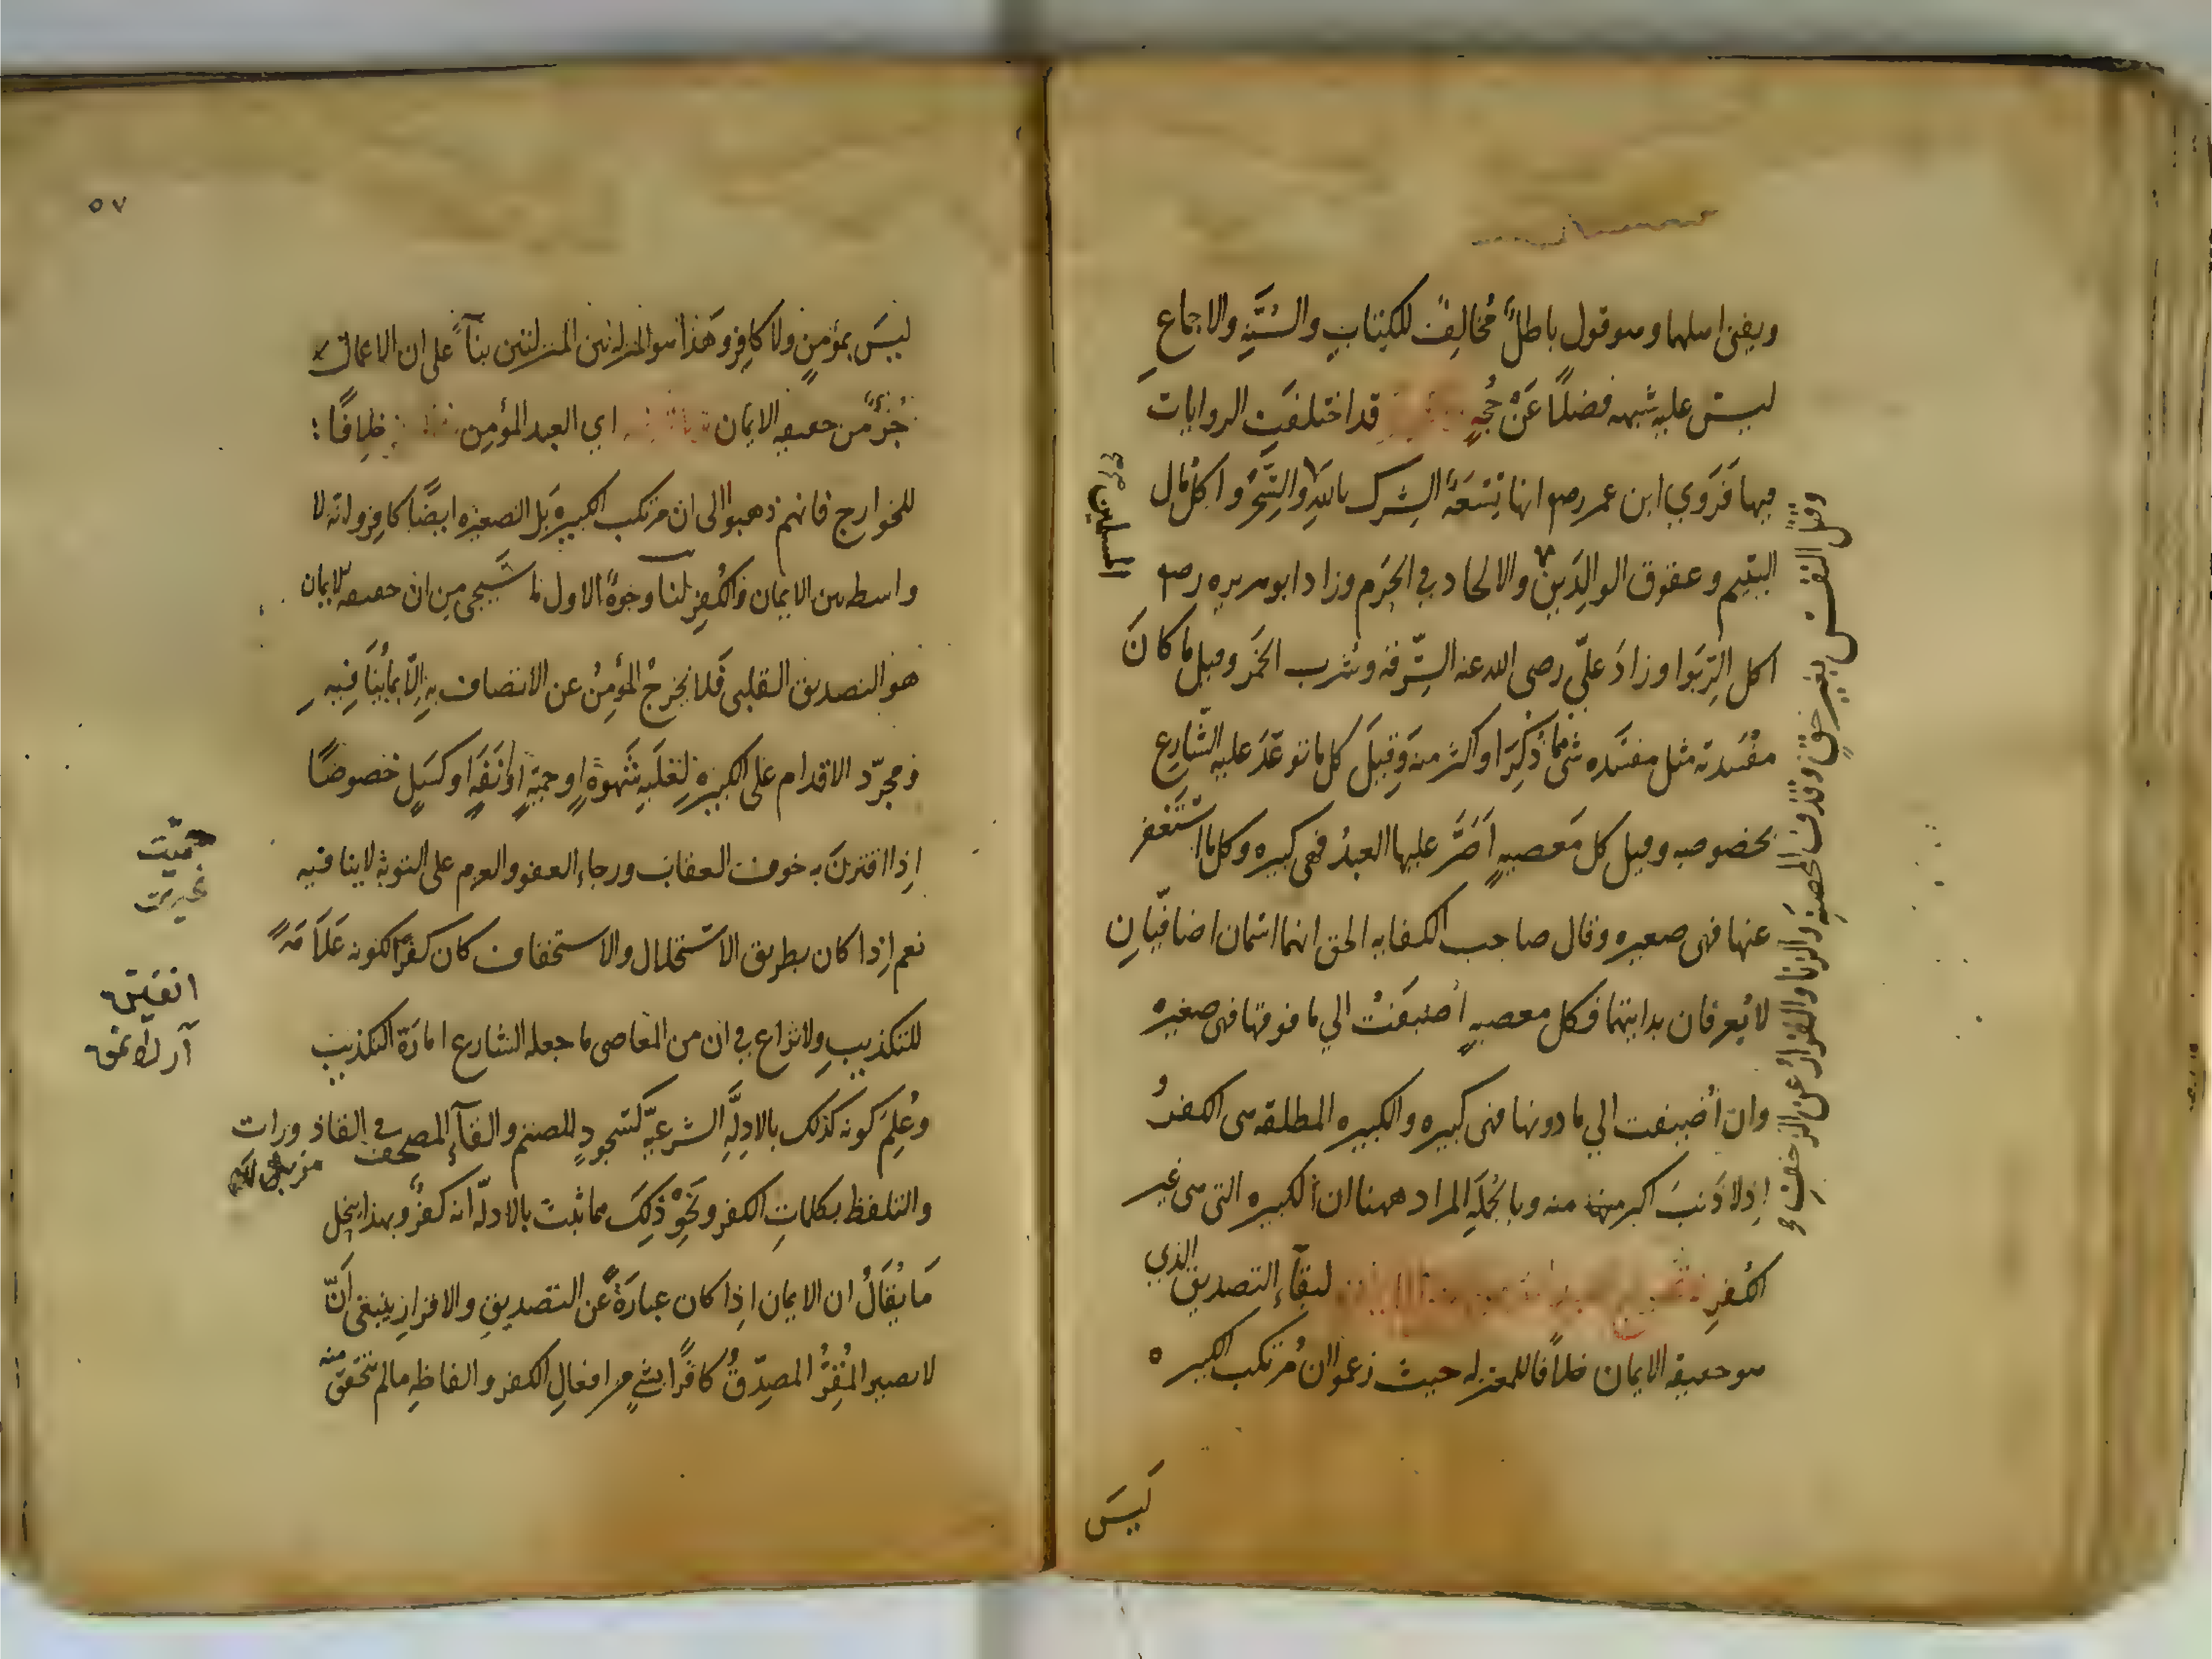 ويفنى اهلها وهو قول باطل مُخالِفٌ للكِتابِ والسُّنَّةِ والاجماعِ
ليس عليه شبهه فضلًا عَنْ حُجةٍ قد اختلفَتِ الروايات
فيها فَرَوي ابن عمر رضه انها تِسْعَةٌ الشِرك باللهِ والسِّحْرُ واكلُ مال
اليتيم وعقوق الوالِدَينِ والالحاد في الحَرَم وزاد ابو هريره رضه
اكل الرِّبَوا وزادَ عليّ رضى الله عنه السَّرِقه وشرب الخَمر وقيل ما كانَ
مفسَدته مثل مفسَده شئ مما ذُكِرَ او اكثر منه وَقِيلَ كل ما توعَدَ عليه الشّارِع
بخصوصه وقيل كل مَعصيهٍ اَصَرَّ عليها العبدُ فهى كبيره وكل ما استَغفر
عنها فهى صغيره وقال صاحب الكفايه الحق انهما اسمان اضافيّانِ
لا يُعرفان بذاتيهما فكل معصيهٍ أضيفَتْ الي ما فوقها فهى صغيره
وان أُضيفت الي ما دونها فهى كبيره والكبيره المطلقه هى الكفرُ
اِذ لا ذَنبَ اكبر منه وبالجُملَهِ المراد ههنا ان الكبيره التى هى غير
الكُفرِ لبقآءِ التصديق الذي
هو حقيقه الايمان خلافًا للمعتزله حيث زعموا ان مُرتكب الكبيره
ليسَ
المسلمين
وقتل النفس بغير حقٍ وقذف المحصنه والزنا والفِرارُ عن الزحفِ و
٥٧
ليسَ بمؤمنٍ ولا كافِرٍ وهَذا هو المنزله بين المنزلتين بنآءً على ان الاعمال
جُزءٌ من حقيقه الايمان اي العبد المؤمِن خِلافًا
للخوارج فانهم ذهبوا الى ان مرتكب الكبيره بَل الصغيره ايضًا كافِر وانه لا
واسطه بين الايمان والكُفرِ لنا وجوهٌ الاول ما سَيجى مِن ان حقيقه الايمان
هو التصديق القلبى فَلا يخرجُ المُؤمِنُ عن الاتصاف بِهِ اِلّا بمايُنَافِيهِ
ومجرّد الاقدام على الكبيرهِ لِغلَبةِ شَهوةٍ او حميةٍ او اَنَفَةٍ او كسَلٍ خصوصًا
اِذا اقترنَ به خوف العقاب ورجاء العفو والعزم على التوبة لا ينافيه
نعم اِذا كان بطريق الاستحلال والاستخفاف كان كُفرًا لكونه عَلَامَةً
للتكذيبِ ولا نزاع في ان من المعاصى ما جعله الشارع امارَة التكذيب
وعُلِمَ كونه كذلك بالادِلَّهِ الشرعيّه كسُجودٍ للصنم والقآءِ المصحف فى القاذورات
والتلفظ بكلماتِ الكفر ونَحْوِ ذلِكَ مما ثبت بالادلّه انه كفرٌ وبهذا ينحل
مَا يُقَالُ ان الايمان اِذا كان عبارَةً عن التصديقِ والاقرارِ ينبغى اَنّ
لا يصير المُقِرُّ المصدِّقُ كافرًا بشئٍ من افعالِ الكفر والفاظِهِ مالم تتحقق منه
حميت
غيرت